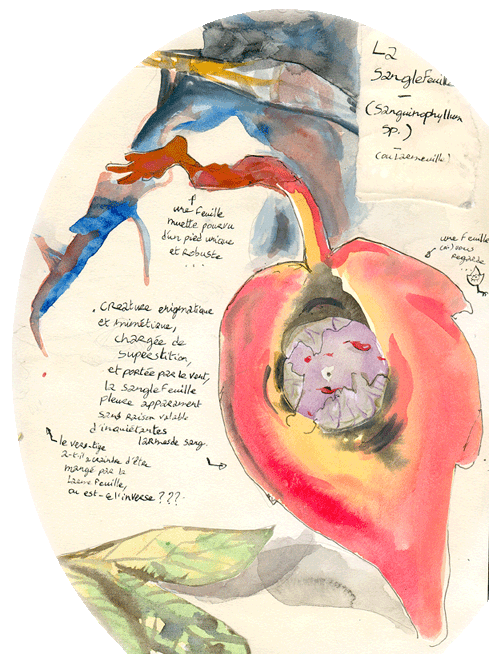 La
Sanglefeuille
(Sanguinophyllum
sp.)
(ou Larmeuille)
une feuille
muette pourvu
d'un pied unique
et robuste
...
une feuille
(qui) vous
regarde
...
. Creature enigmatique
et mimétique,
chargée de
superstition,
et portée par le vent,
la sanglefeuille
pleure apparament
sans raison valable
d'inquiétantes
larmes de sang.
le vers-tige
a-t-il a craindre d'être
mangé par la
Larme feuille,
ou est-ce l'inverse ???